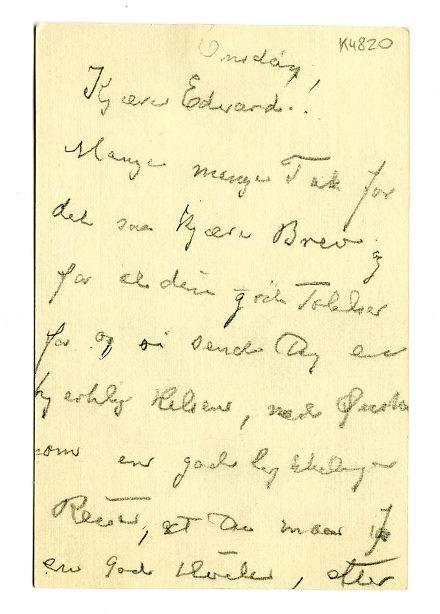 K4820
Onsdag,
Kjære Edvard!.
Mange mange Tak for
det saa kjære Brev og
for al din gode
for og vi send Dig en
hjertelig Helsen, med Ønske
om en god lykkelig
Reise, at Du maa faa
en god, efter